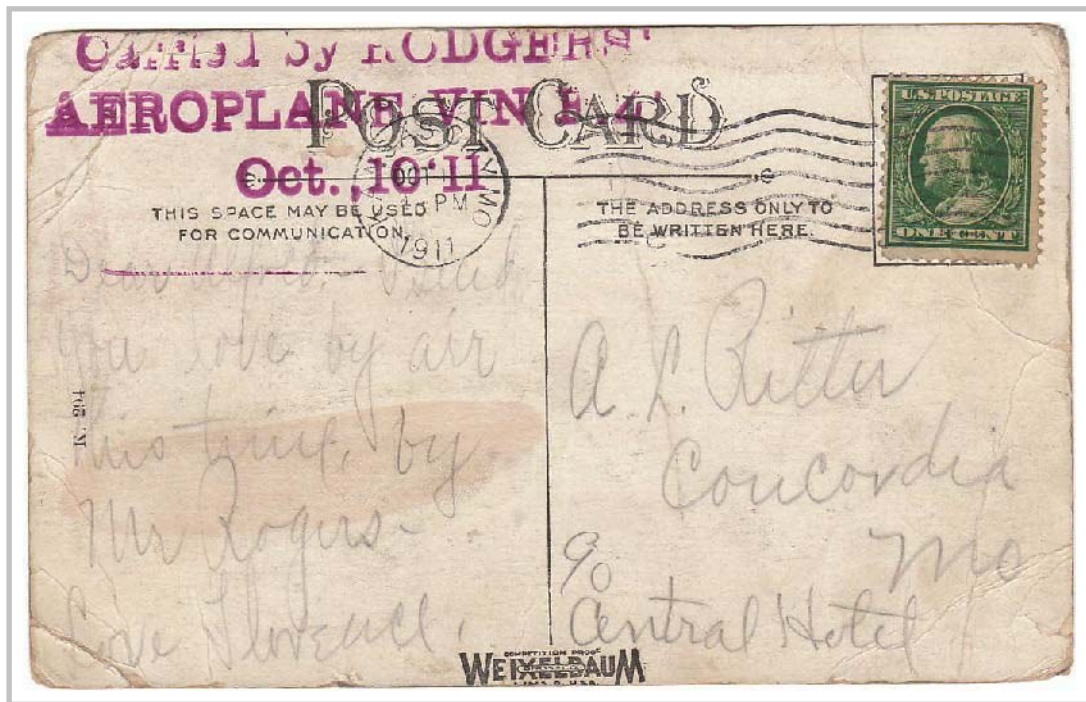 Carried by RODGERS'
AEROPLANE VIN FIZ
Oct., 10 '11
POST CARD
OCT
PM
MO
1911
U.S. POSTAGE
ONE CENT
THIS SPACE MAY BE USED
FOR COMMUNICATION.
THE ADDRESS ONLY TO
BE WRITTEN HERE.
Dear Alfred - I send
you love by air
this time, by
Mr Rogers -
Love Florence.
A. L. Ritter
Concordia
Mo
c/o
Central Hotel
N. 204
COMPETITION PROOF
WEIXELBAUM
LIMA, O. U.S.A.